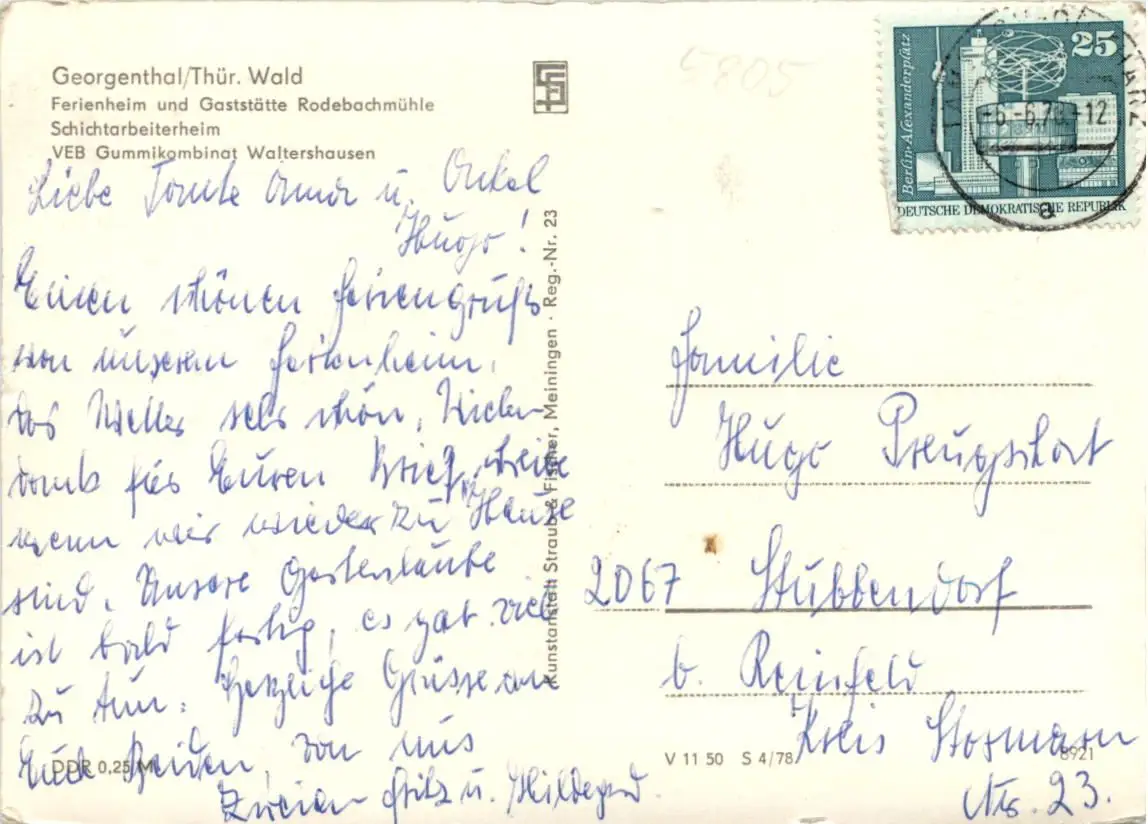 Georgenthal/Thür. Wald
Ferienheim und Gaststätte Rodebachmühle
Schichtarbeiterheim
VEB Gummikombinat Waltershausen
Liebe Tante Anna u. Onkel
Hugo!
Einen schönen Feriengruß
von unserem Ferienheim,
das Wetter sehr schön. Vielen
dank für Euren Brief, schreibe
wenn wir wieder zu Hause
sind. Unsere Gartenlaube
ist bald fertig, es gab viel
zu tun. Herzliche Grüsse an
Euch Beiden, von uns
Zweien Fritz u. Hildegard.
DDR 0,25 M
Kunstanstalt Straub & Fischer, Meiningen · Reg.-Nr. 23
5805
Berlin-Alexanderplatz
25
DEUTSCHE DEMOKRATISCHE REPUBLIK
-6.-6.78.-12
a
Familie
Hugo
2067 Stubbendorf
b. Reinfeld
Kreis Stormarn
Nr. 23.
V 11 50 S 4/78
8921